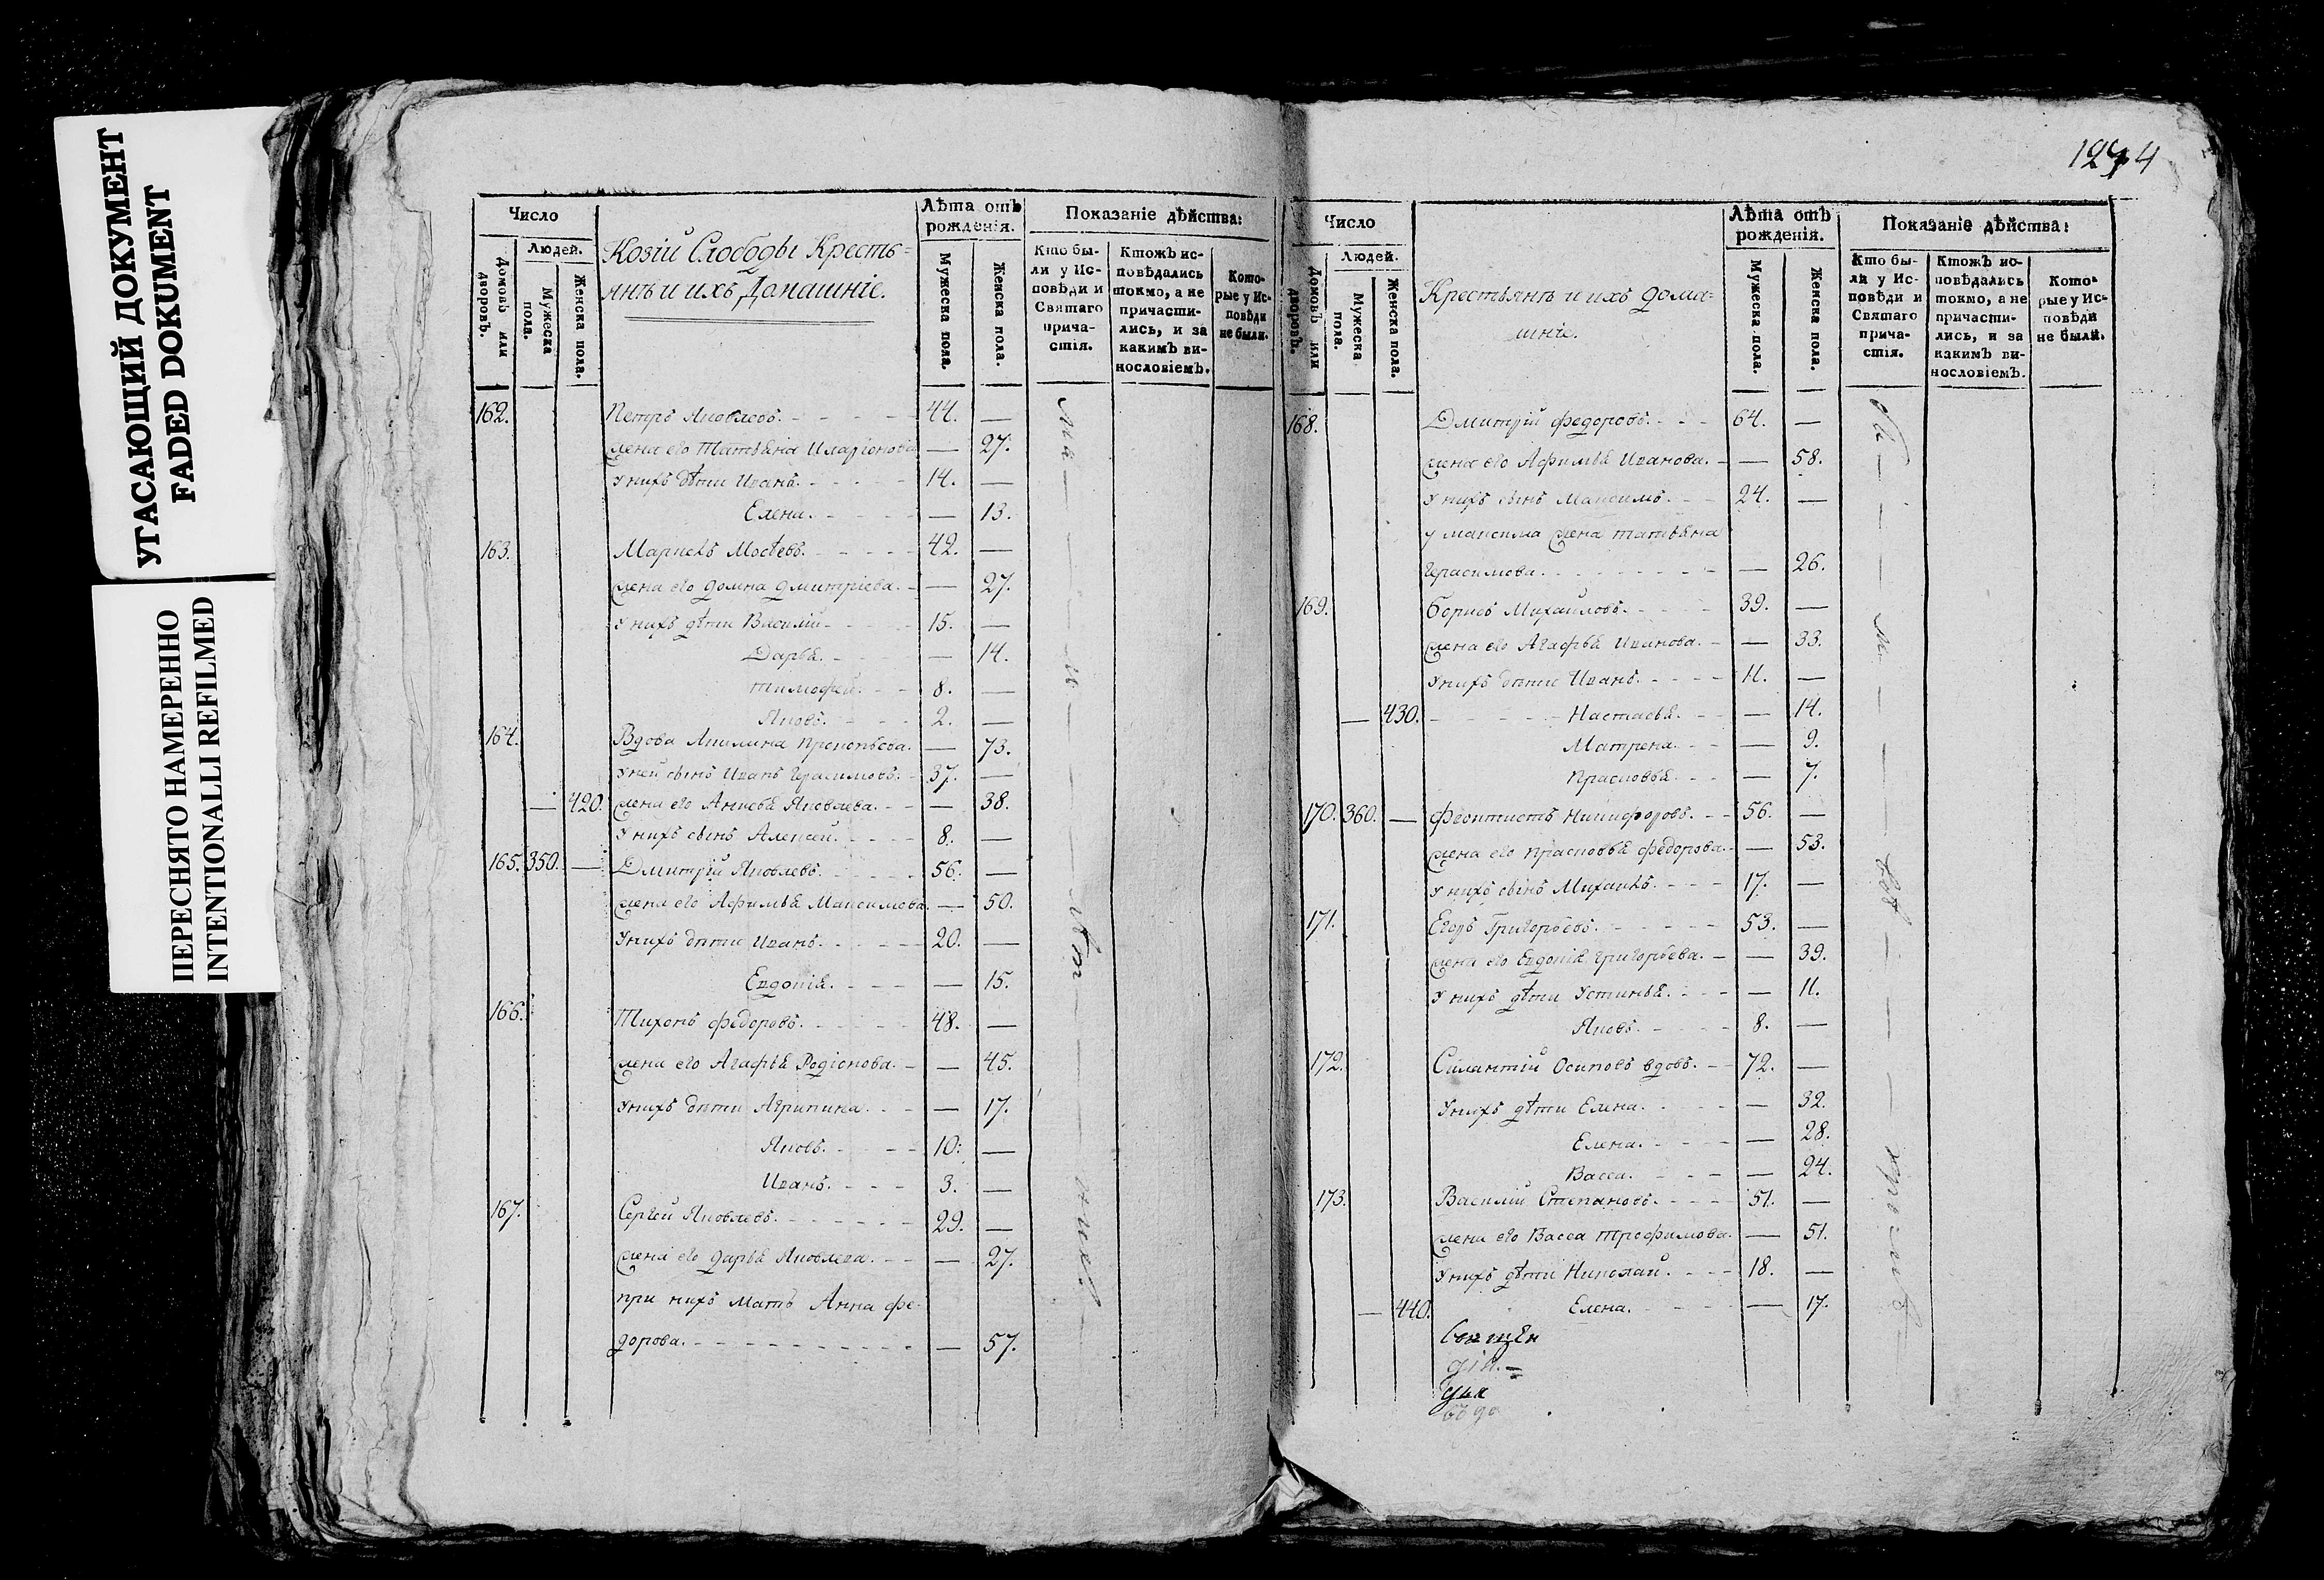 УГАСАЮЩИЙ ДОКУМЕНТ
FADED DOKUMENT
ПЕРЕСНЯТО НАМЕРЕННО
INTENTIONALLI REFILMED
Число
Людей.
Домовъ или дворовъ.
Мужеска пола.
Женска пола.
Козій Слободы Кресть=
янѣ и ихъ Домашніе.
Лѣта отъ рожденія.
Мужеска пола.
Женска пола.
Показаніе дѣйства:
Кто бы-
ли у Ис-
повѣди и
Святаго
прича-
стія.
Ктожъ ис-
повѣдались
токмо, а не
причасти-
лись, и за
какимъ ви-
нословіемъ.
Кото-
рые у Ис-
повѣди
не были.
162. Петръ Яковлевъ. 44. —
жена его Татьяна Иларіонова — 27.
У нихъ дѣти Иванъ. 14. —
Елена. — 13.
163. Маркелъ Мосѣевъ. 42. —
жена его Домна Дмитріева. — 27.
У нихъ дѣти Василій 15. —
Дарья. — 14.
Тимофей. 8. —
Яковъ. 2. —
164. Вдова Акилина Прокопьева. — 73.
У ней сынъ Иванъ Герасимовъ. 37. —
— 420. жена его Анисья Яковлева. — 38.
У нихъ сынъ Алексей. 8. —
165. 350. — Дмитрій Яковлевъ. 56. —
жена его Афимья Максимова. — 50.
У нихъ дѣти Иванъ. 20. —
Евдокія. — 15.
166. Тихонъ Федоровъ. 48. —
жена его Агафья Родіонова. — 45.
У нихъ дѣти Агрипина. — 17.
Яковъ. 10. —
Иванъ. 3. —
167. Сергей Яковлевъ. 29. —
жена его Дарья Яковлева. — 27.
при нихъ мать Анна Фе-
дорова. — 57.
1244
Число
Людей.
Домовъ или дворовъ.
Мужеска пола.
Женска пола.
Крестьянѣ и ихъ дома=
шніе.
Лѣта отъ рожденія.
Мужеска пола.
Женска пола.
Показаніе дѣйства:
Кто бы-
ли у Ис-
повѣди и
Святаго
прича-
стія.
Ктожъ ис-
повѣдались
токмо, а не
причасти-
лись, и за
какимъ ви-
нословіемъ.
Кото-
рые у Ис-
повѣди
не были.
168. Дмитрій Федоровъ. 64. —
жена его Афимья Иванова. — 58.
У нихъ сынъ Максимъ. 24. —
у Максима жена Татьяна
Герасимова. — 26.
169. Борисъ Михайловъ. 39. —
жена его Агафья Иванова. — 33.
У нихъ дѣти Иванъ. 11. —
— 430. Настасья. — 14.
Матрена. — 9.
Прасковья. — 7.
170. 360. — Феоктистъ Никифоровъ. 56. —
жена его Прасковья Федорова. — 53.
У нихъ сынъ Михаилъ. 17. —
171. Егоръ Григорьевъ. 53. —
жена его Евдокія Григорьева. — 39.
У нихъ дѣти Устинья. — 11.
Яковъ. 8. —
172. Силантій Осиповъ вдовъ. 72. —
У нихъ дѣти Елена. — 32.
Елена. — 28.
Васса. — 24.
173. Василій Степановъ. 51. —
жена его Васса Трофимова. — 51.
У нихъ дѣти Николай. 18. —
— 440. Елена. — 17.